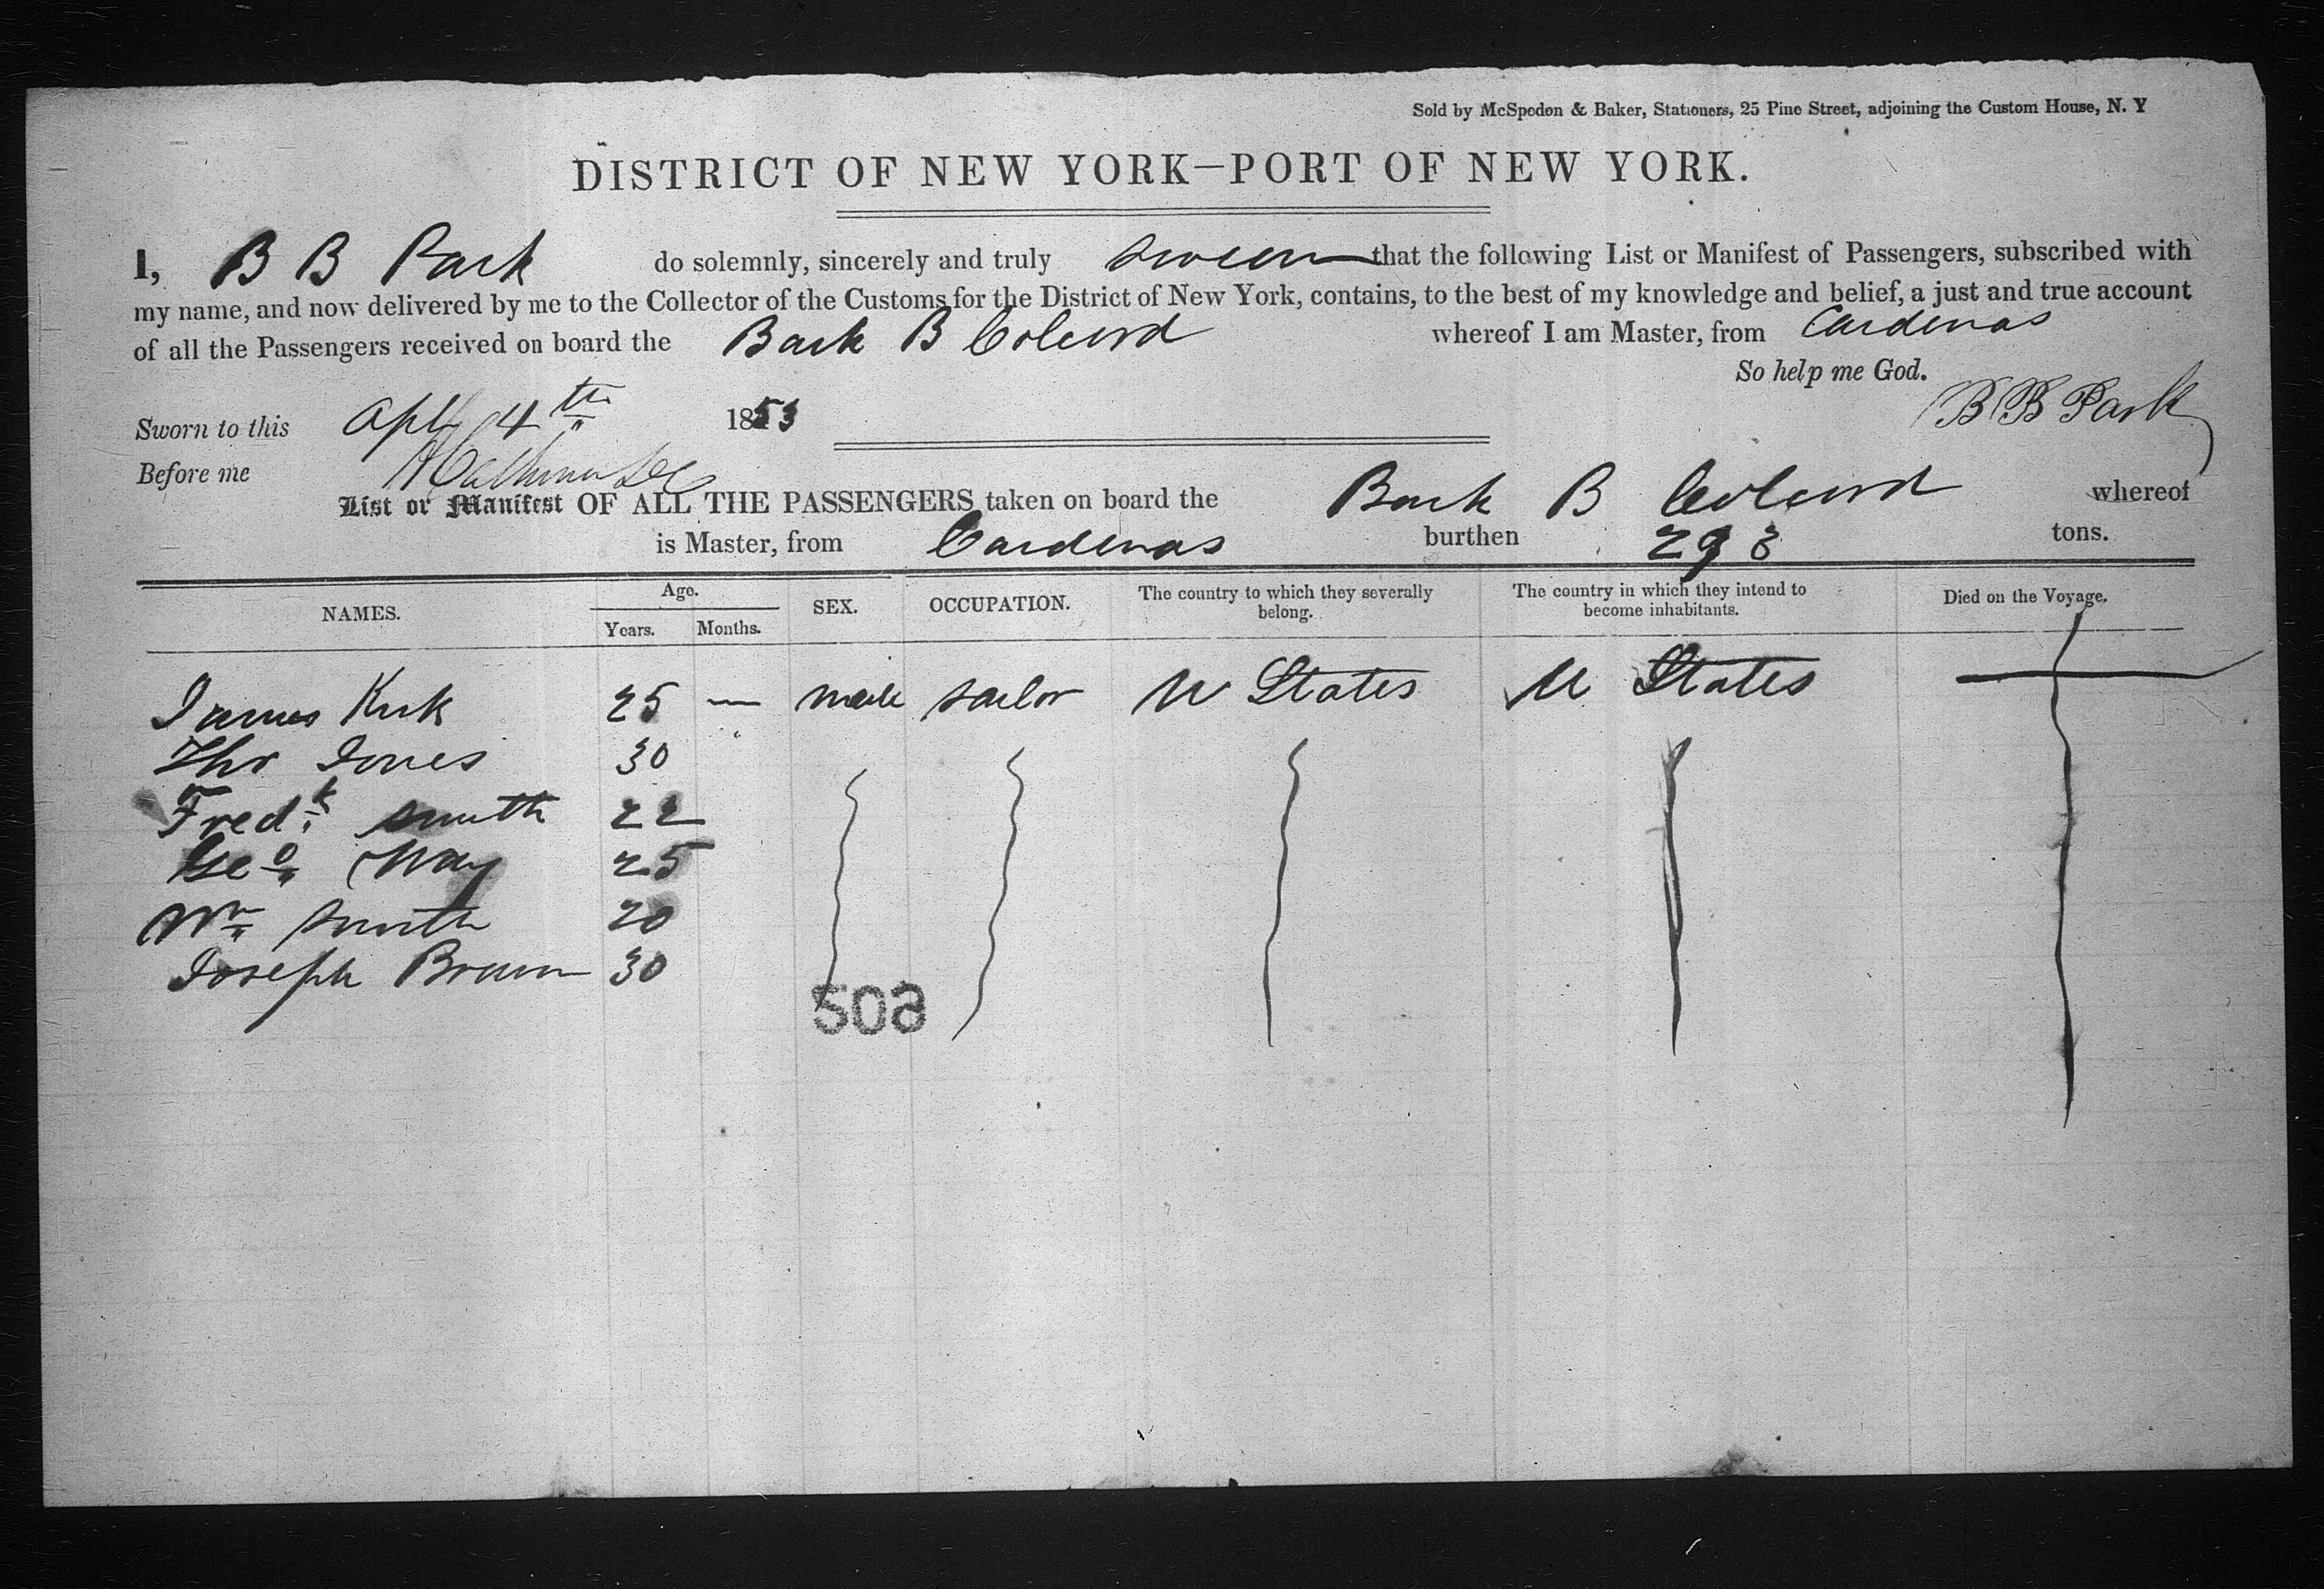 Sold by McSpedon & Baker, Stationers, 25 Pine Street, adjoining the Custom House, N. Y
DISTRICT OF NEW YORK—PORT OF NEW YORK.
I, B B Park do solemnly, sincerely and truly swear that the following List or Manifest of Passengers, subscribed with
my name, and now delivered by me to the Collector of the Customs for the District of New York, contains, to the best of my knowledge and belief, a just and true account
of all the Passengers received on board the Bark B whereof I am Master, from Cardenas
So help me God.
B B Park
Sworn to this Apl 4th 1853
Before me
List or Manifest OF ALL THE PASSENGERS taken on board the Bark B whereof
is Master, from Cardenas burthen 293 tons.
NAMES. Age. Years. Months. SEX. OCCUPATION. The country to which they severally belong. The country in which they intend to become inhabitants. Died on the Voyage.
James Kirk 25 — male sailor U States U States
Tho Jones 30
Fredk Smith 22
Geo Way 25
Wm Smith 20
Joseph Brown 30
502